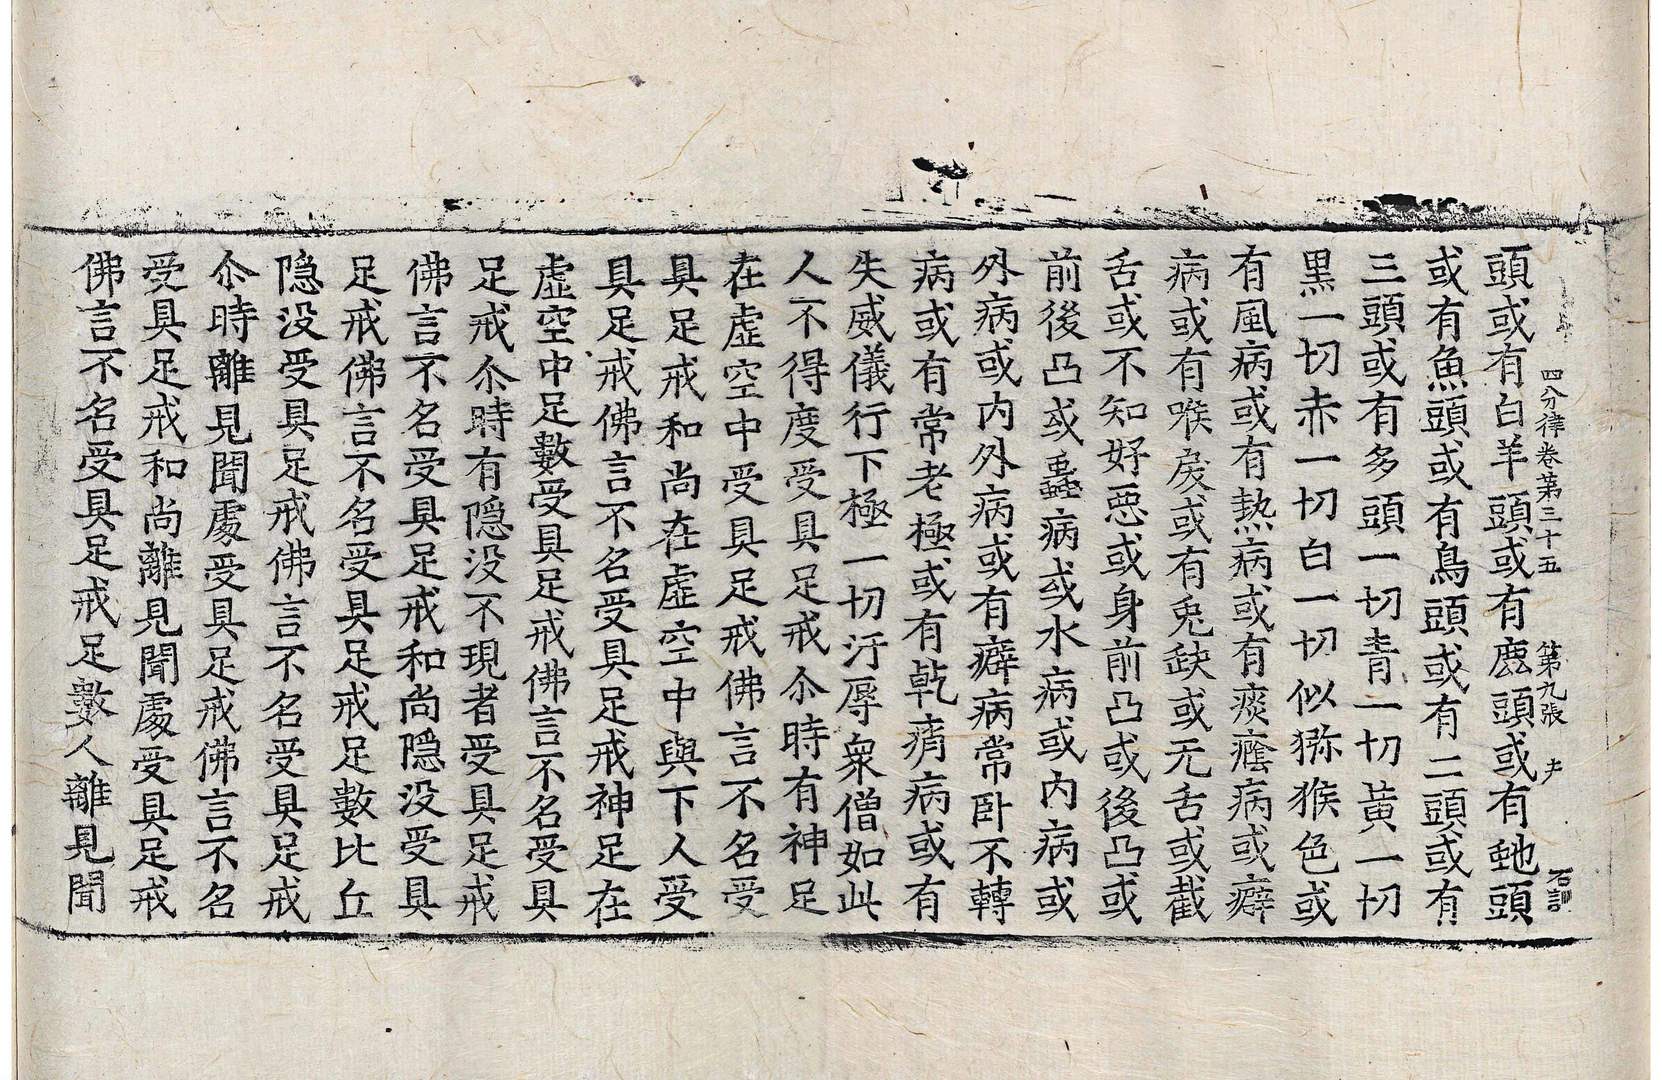 四分律卷第三十五 第九張 夫 石訓
頭或有白羊頭或有鹿頭或有虵頭
或有魚頭或有鳥頭或有二頭或有
三頭或有多頭一切青一切黃一切
黑一切赤一切白一切似猕猴色或
有風病或有熱病或有痰癊病或癖
病或有喉戾或有兎缺或无舌或截
舌或不知好惡或身前凸或後凸或
前後凸或蟲病或水病或内病或
外病或内外病或有癖病常卧不轉
病或有常老極或有乾痟病或有
失威儀行下極一切汙辱衆僧如此
人不得度受具足戒尒時有神足
在虛空中受具足戒佛言不名受
具足戒和尚在虛空中與下人受
具足戒佛言不名受具足戒神足在
虛空中足數受具足戒佛言不名受具
足戒尒時有隐没不現者受具足戒
佛言不名受具足戒和尚隐没受具
足戒佛言不名受具足戒足數比丘
隐没受具足戒佛言不名受具足戒
尒時離見聞處受具足戒佛言不名
受具足戒和尚離見聞處受具足戒
佛言不名受具足戒足數人離見聞